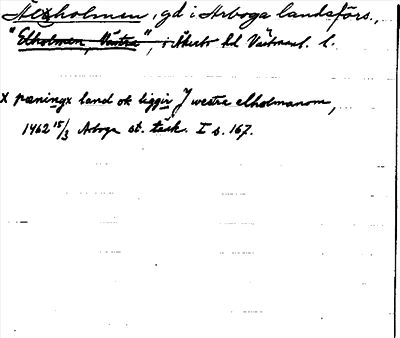 Älholmen, gd i Arboga landsförs.,
"Elholmen, Västra", i Åkerbo hd Västmanl. l.
x pæningx land ok liggir J westre elholmanom,
1462 15/3 Arboga st. tänk. I s. 167.